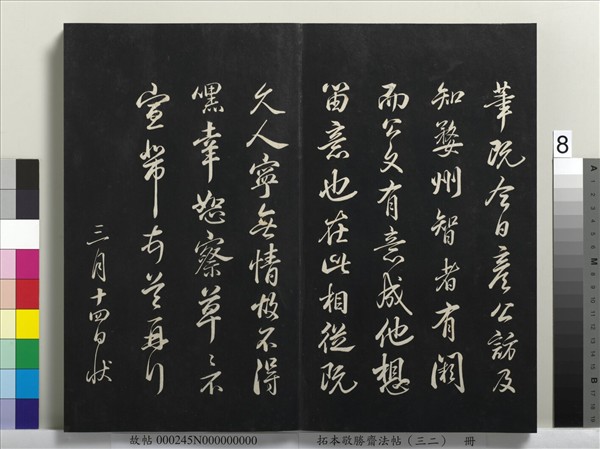 華既今日彥公訪及
知婺州智者有闕
而公又有意成他想
留意也在此相從既
久人寧無情故不得
嘿幸恕察草草不
宣 再行
三月十四日狀
8
故帖 000245N000000000
拓本敬勝齋法帖(三二) 冊